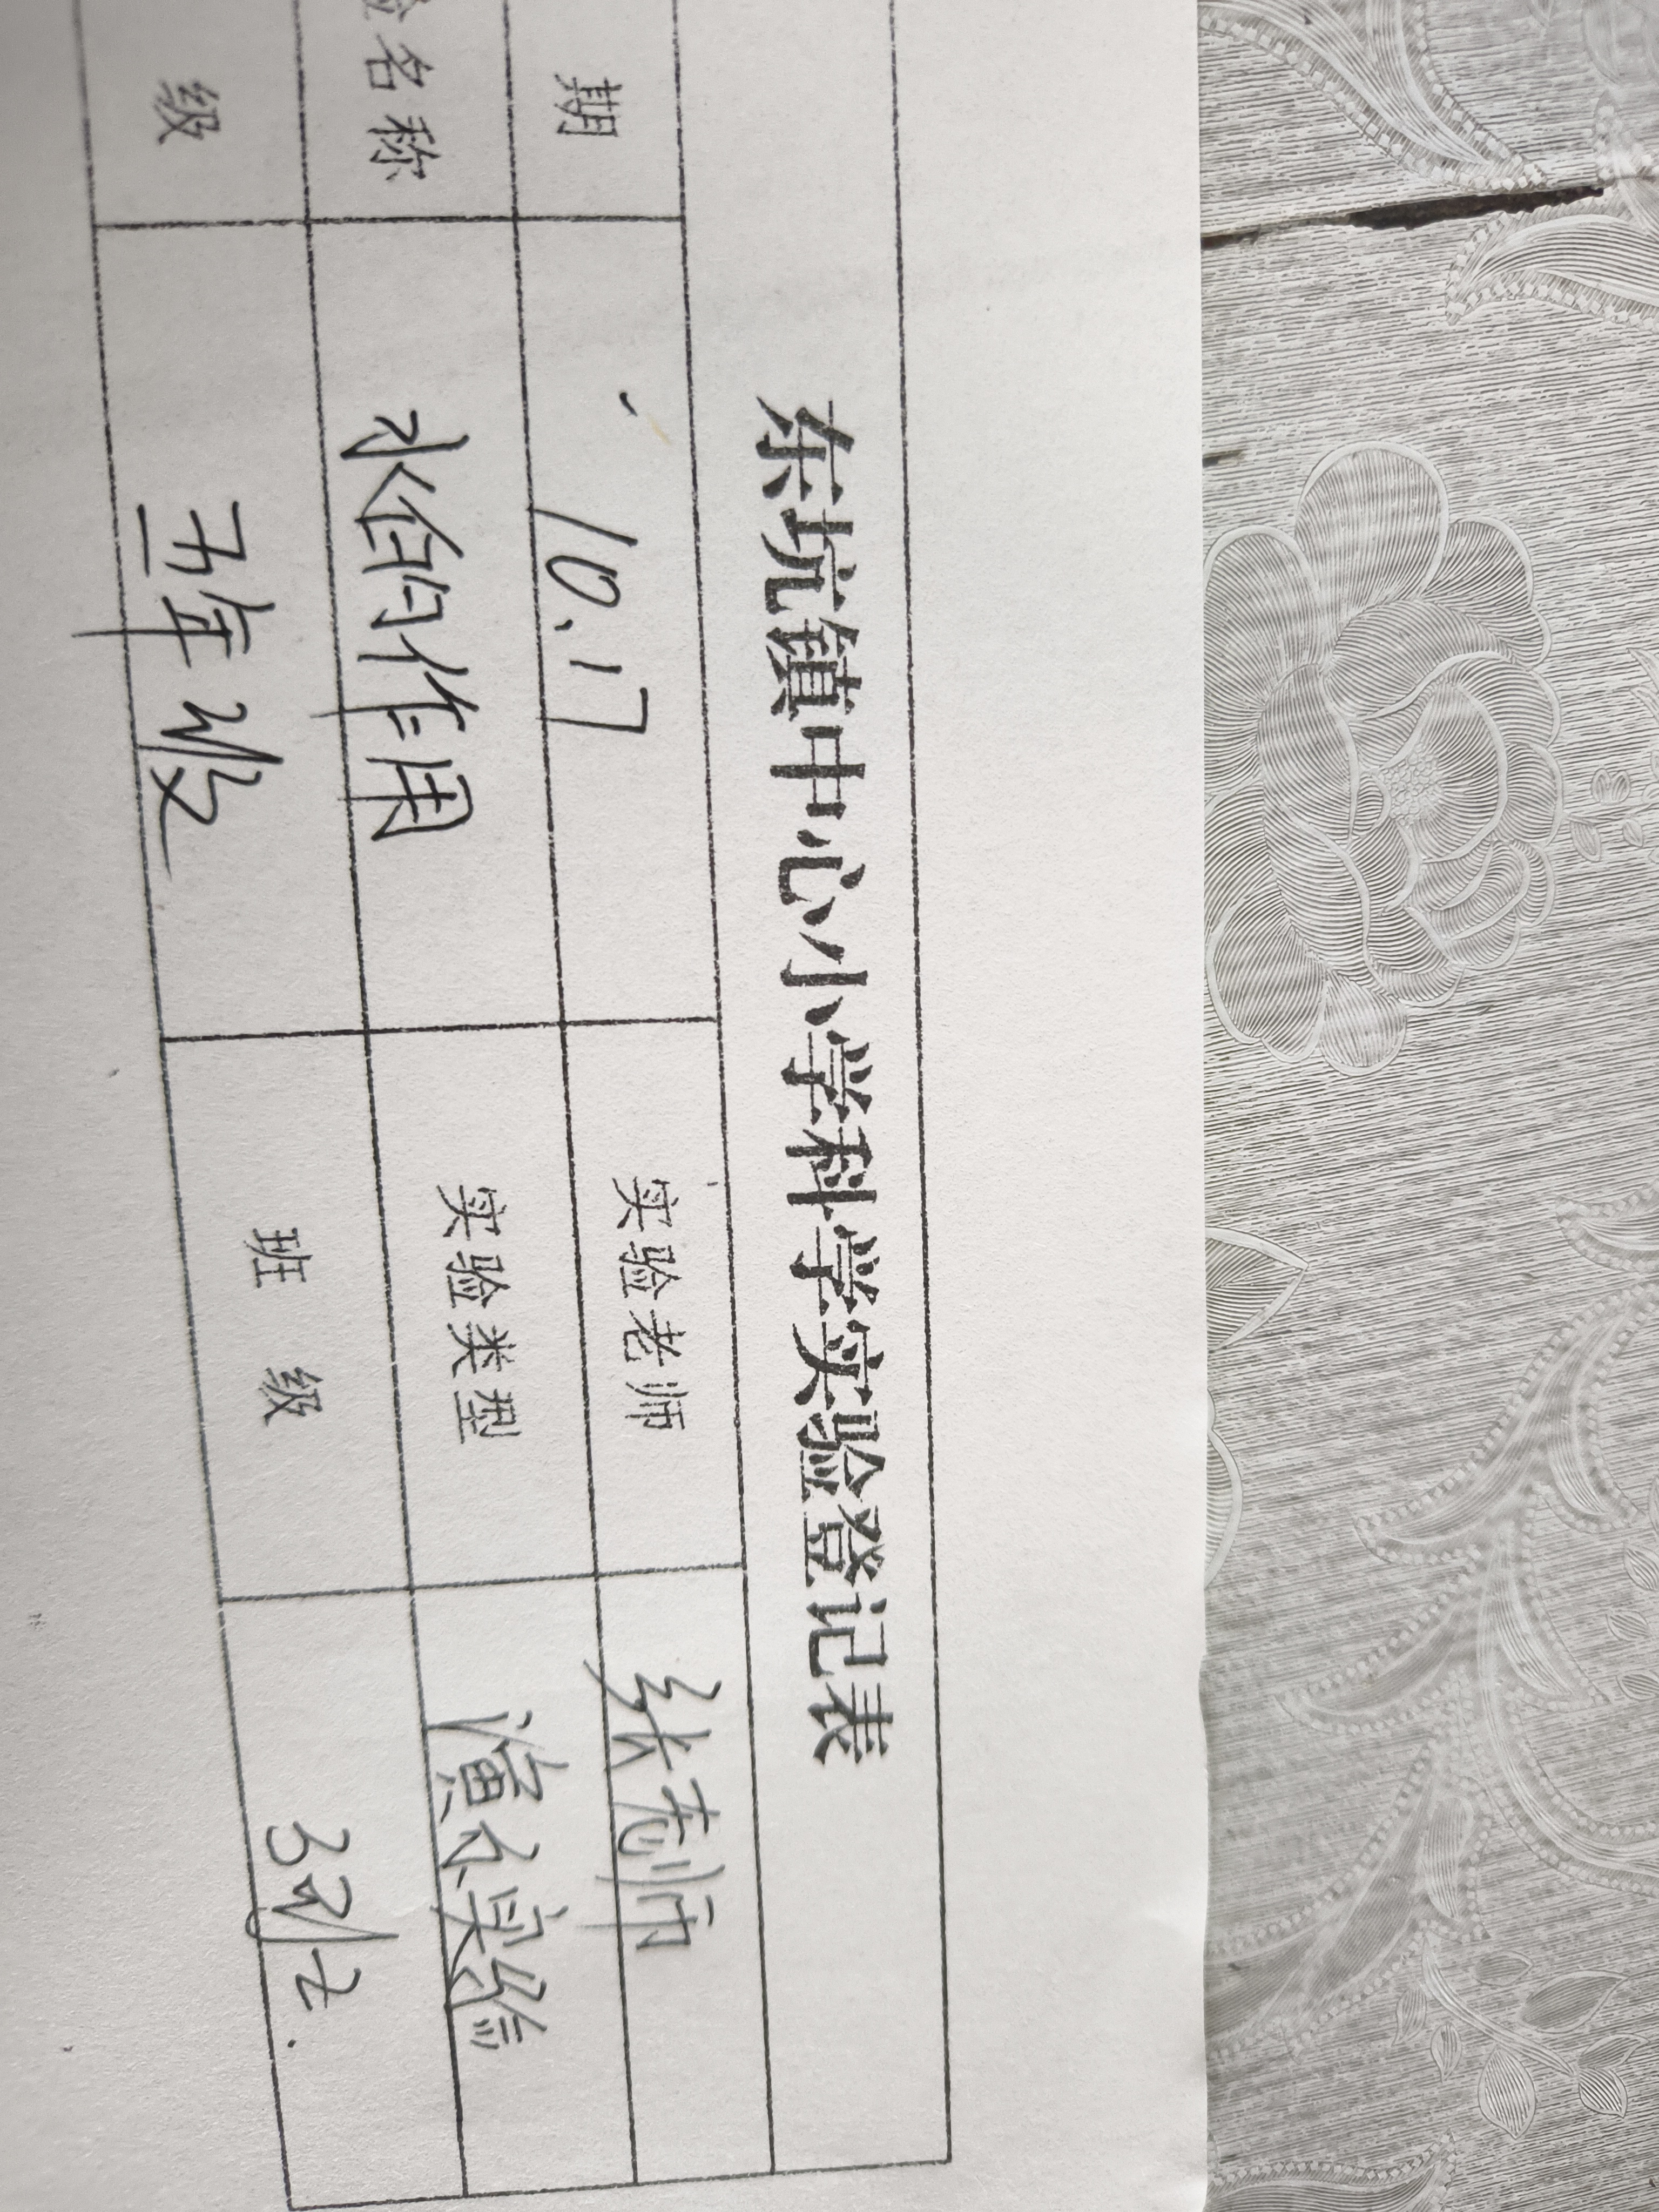 东坑镇中心小学科学实验登记表
期 10.17 实验老师 张老师
验名称 水的作用 实验类型 演示实验
级 五年级 班 级 3班